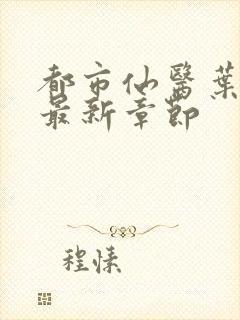 都市仙醫葉
最新章節
程愫